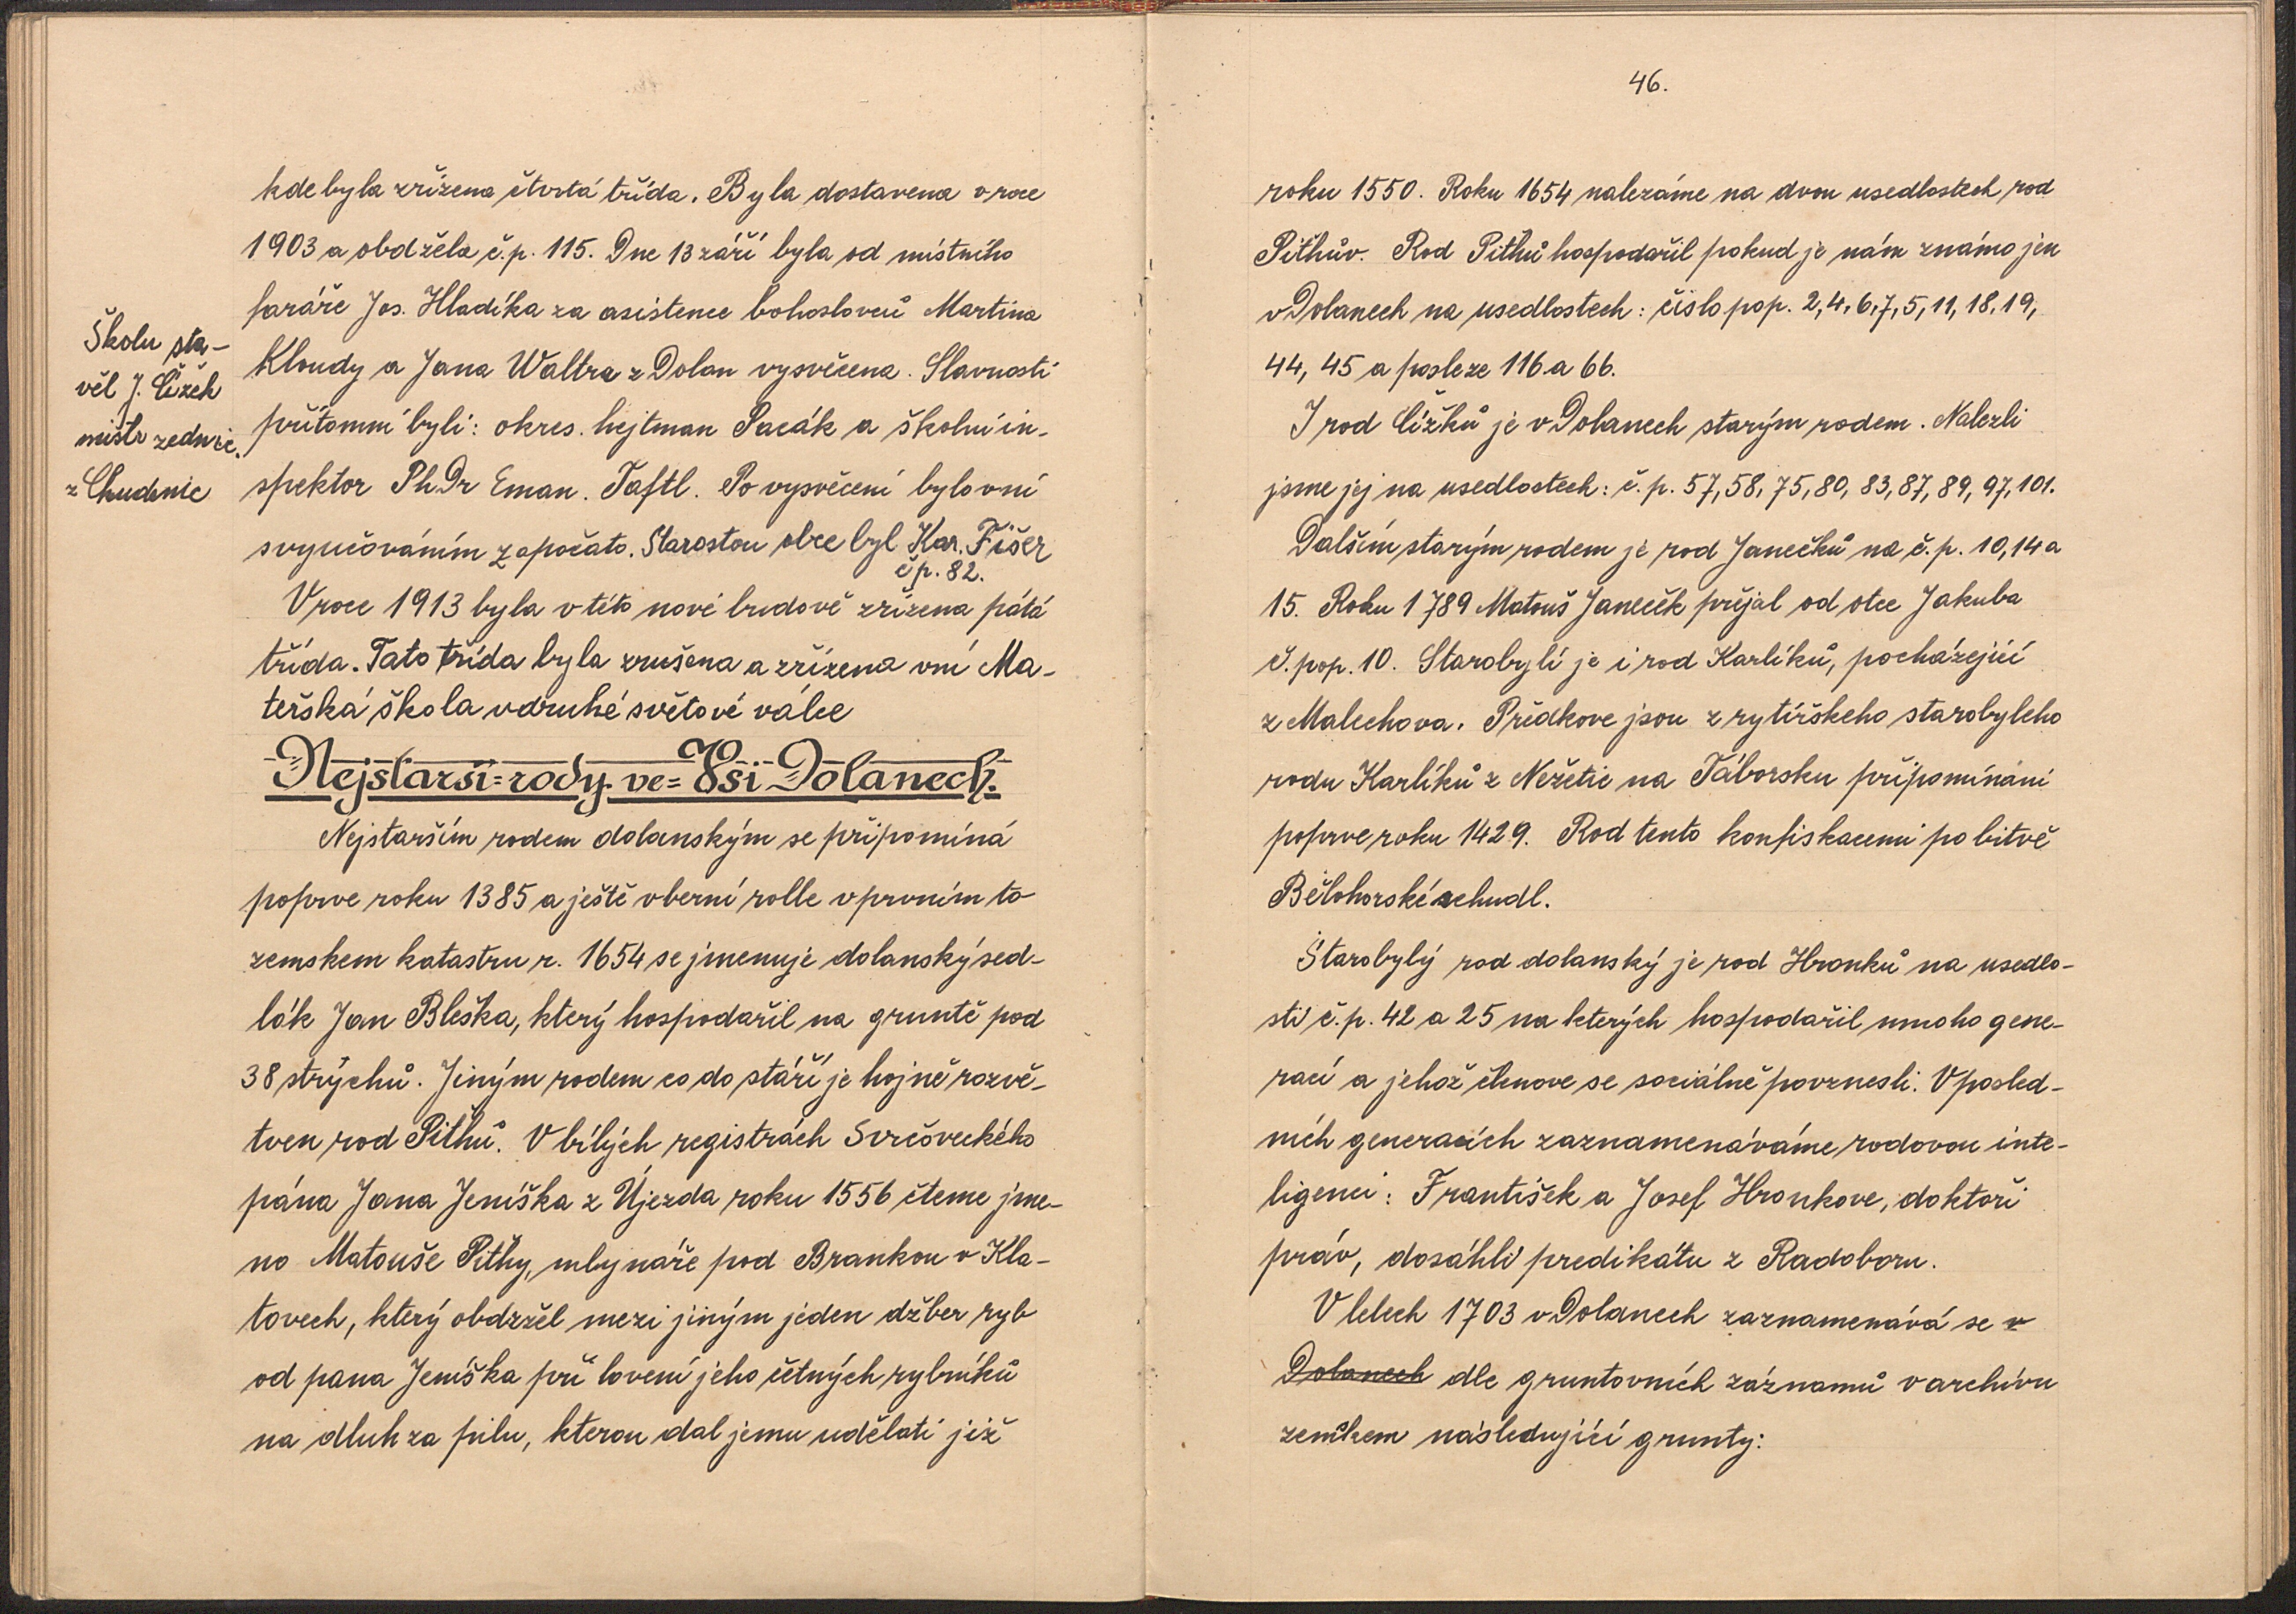 kde byla zřízena čtvrtá třída. Byla dostavena v roce
1903 a obdžela č.p. 115. Dne 13 září byla od místního
faráře Jos. Hladíka za asistence bohoslovců Martina
Kloudy a Jana Waltra z Dolan vysvěcena. Slavnosti
přítomni byli: okres. hejtman Pacák a školní in-
spektor PhDr Eman. Taftl. Po vysvěcení bylo v ní
s vyučováním započato. Starostou obce byl Kar. Fišer
čp. 82.
Školu sta-
věl J. Čížek
mistr zednic.
z Chudenic
V roce 1913 byla v této nové budově zřízena pátá
třída. Tato třída byla zrušena a zřízena v ní Ma-
teřská škola v druhé světové válce
Nejstarší=rody ve=Vsi Dolanech.
Nejstarším rodem dolanským se připomíná
poprve roku 1385 a ještě v berní rolle v prvním to
zemskem katastru r. 1654 se jmenuje dolanský sed-
lák Jan Bleška, který hospodařil na gruntě pod
38 strychů. Jiným rodem co do stáří je hojně rozvě-
tven rod Pithů. V bílých registrách Svrčoveckého
pána Jana Jeníška z Újezda roku 1556 čteme jme-
no Matouše Pithy, mlynáře pod Brankou v Kla-
tovech, který obdržel mezi jiným jeden džber ryb
od pana Jeníška při lovení jeho četných rybníků
na dluh za pilu, kterou dal jemu udělati již
46.
roku 1550. Roku 1654 nalezáme na dvou usedlostech rod
Pithův. Rod Pithů hospodařil pokud je nám známo jen
v Dolanech na usedlostech: číslo pop. 2, 4, 6, 7, 5, 11, 18, 19,
44, 45 a posleze 116 a 66.
I rod Čížků je v Dolanech starým rodem. Nalezli
jsme jej na usedlostech: č. p. 57, 58, 75, 80, 83, 87, 89, 97, 101.
Dalším starým rodem je rod Janečků na č. p. 10, 14 a
15. Roku 1789 Matouš Janeček přejal od otce Jakuba
č. pop. 10. Starobylí je i rod Karlíků, pocházející
z Malechova. Předkove jsou z rytířskeho starobyleho
rodu Karlíků z Nežetic na Táborsku připomínáni
poprve roku 1429. Rod tento konfiskacemi po bitvě
Bělohorské zchudl.
Starobylý rod dolanský je rod Hronků na usedlo-
sti č. p. 42 a 25 na kterých hospodařil mnoho gene-
rací a jehož členove se sociálně povznesli. V posled-
ních generacích zaznamenáváme rodovou inte-
ligenci: František a Josef Hronkove, doktoři
práv, dosáhli predikátu z Radoboru.
V letech 1703 v Dolanech zaznamenává se v
Dolanech dle gruntovních záznamů v archivu
zemskem následující grunty: